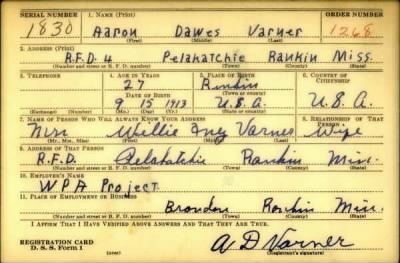 SERIAL NUMBER 1. NAME (Print) ORDER NUMBER
1830 Aaron Dawes Varner 1268
(First) (Middle) (Last)
2. ADDRESS (Print)
R.F.D. 4 Pelahatchie Rankin Miss.
(Number and street or R. F. D. number) (Town) (County) (State)
3. TELEPHONE 4. AGE IN YEARS 5. PLACE OF BIRTH 6. COUNTRY OF CITIZENSHIP
27 Rankin
DATE OF BIRTH (Town or county)
9 15 1913 U.S.A. U.S.A.
(Exchange) (Number) (Mo.) (Day) (Yr.) (State or country)
7. NAME OF PERSON WHO WILL ALWAYS KNOW YOUR ADDRESS 8. RELATIONSHIP OF THAT PERSON
Mrs Willie Inez Varner Wife
(Mr., Mrs., Miss) (First) (Middle) (Last)
9. ADDRESS OF THAT PERSON
R.F.D. Pelahatchie Rankin Miss.
(Number and street or R. F. D. number) (Town) (County) (State)
10. EMPLOYER'S NAME
WPA Project
11. PLACE OF EMPLOYMENT OR BUSINESS
Brandon Rankin Miss.
(Number and street or R. F. D. number) (Town) (County) (State)
I AFFIRM THAT I HAVE VERIFIED ABOVE ANSWERS AND THAT THEY ARE TRUE.
REGISTRATION CARD
D. S. S. Form 1 A D Varner
(Registrant's signature)